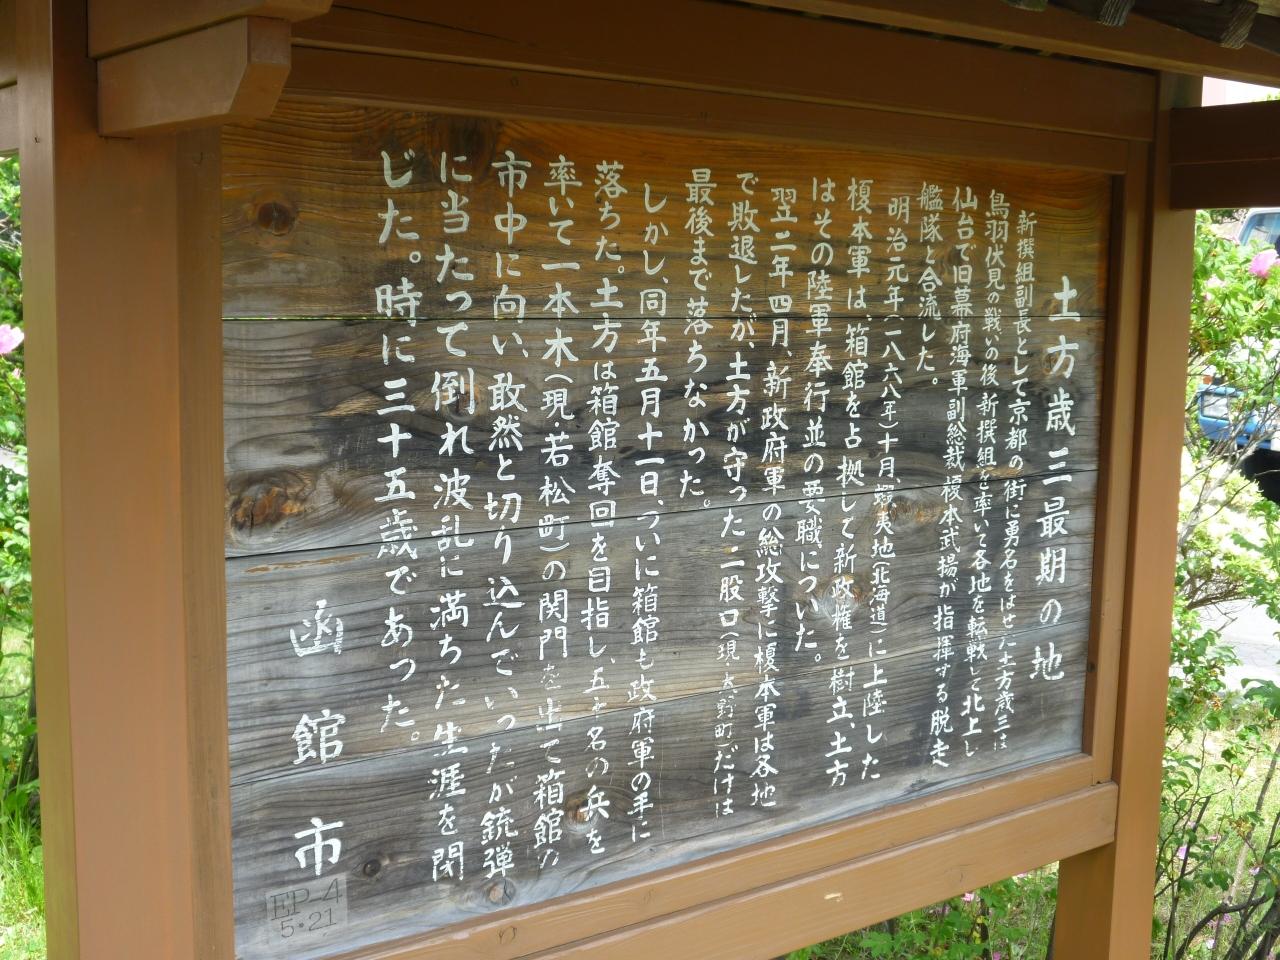 土方歳三最期の地
新撰組副長として京都の街に勇名をはせた土方歳三は
鳥羽伏見の戦いの後、新撰組を率いて各地を転戦して北上し
仙台で旧幕府海軍副総裁榎本武揚が指揮する脱走
艦隊と合流した。
明治元年(一八六八年)十月、蝦夷地(北海道)に上陸した
榎本軍は、箱館を占拠して新政権を樹立、土方
はその陸軍奉行並の要職についた。
翌二年四月、新政府軍の総攻撃に榎本軍は各地
で敗退したが、土方が守った二股口(現・大野町)だけは
最後まで落ちなかった。
しかし、同年五月十一日、ついに箱館も政府軍の手に
落ちた。土方は箱館奪回を目指し、五十名の兵を
率いて一本木(現・若松町)の関門を出て箱館の
市中に向い、敢然と切り込んでいったが銃弾
に当たって倒れ波乱に満ちた生涯を閉
じた。時に三十五歳であった。
函館市
EP-4
5・21